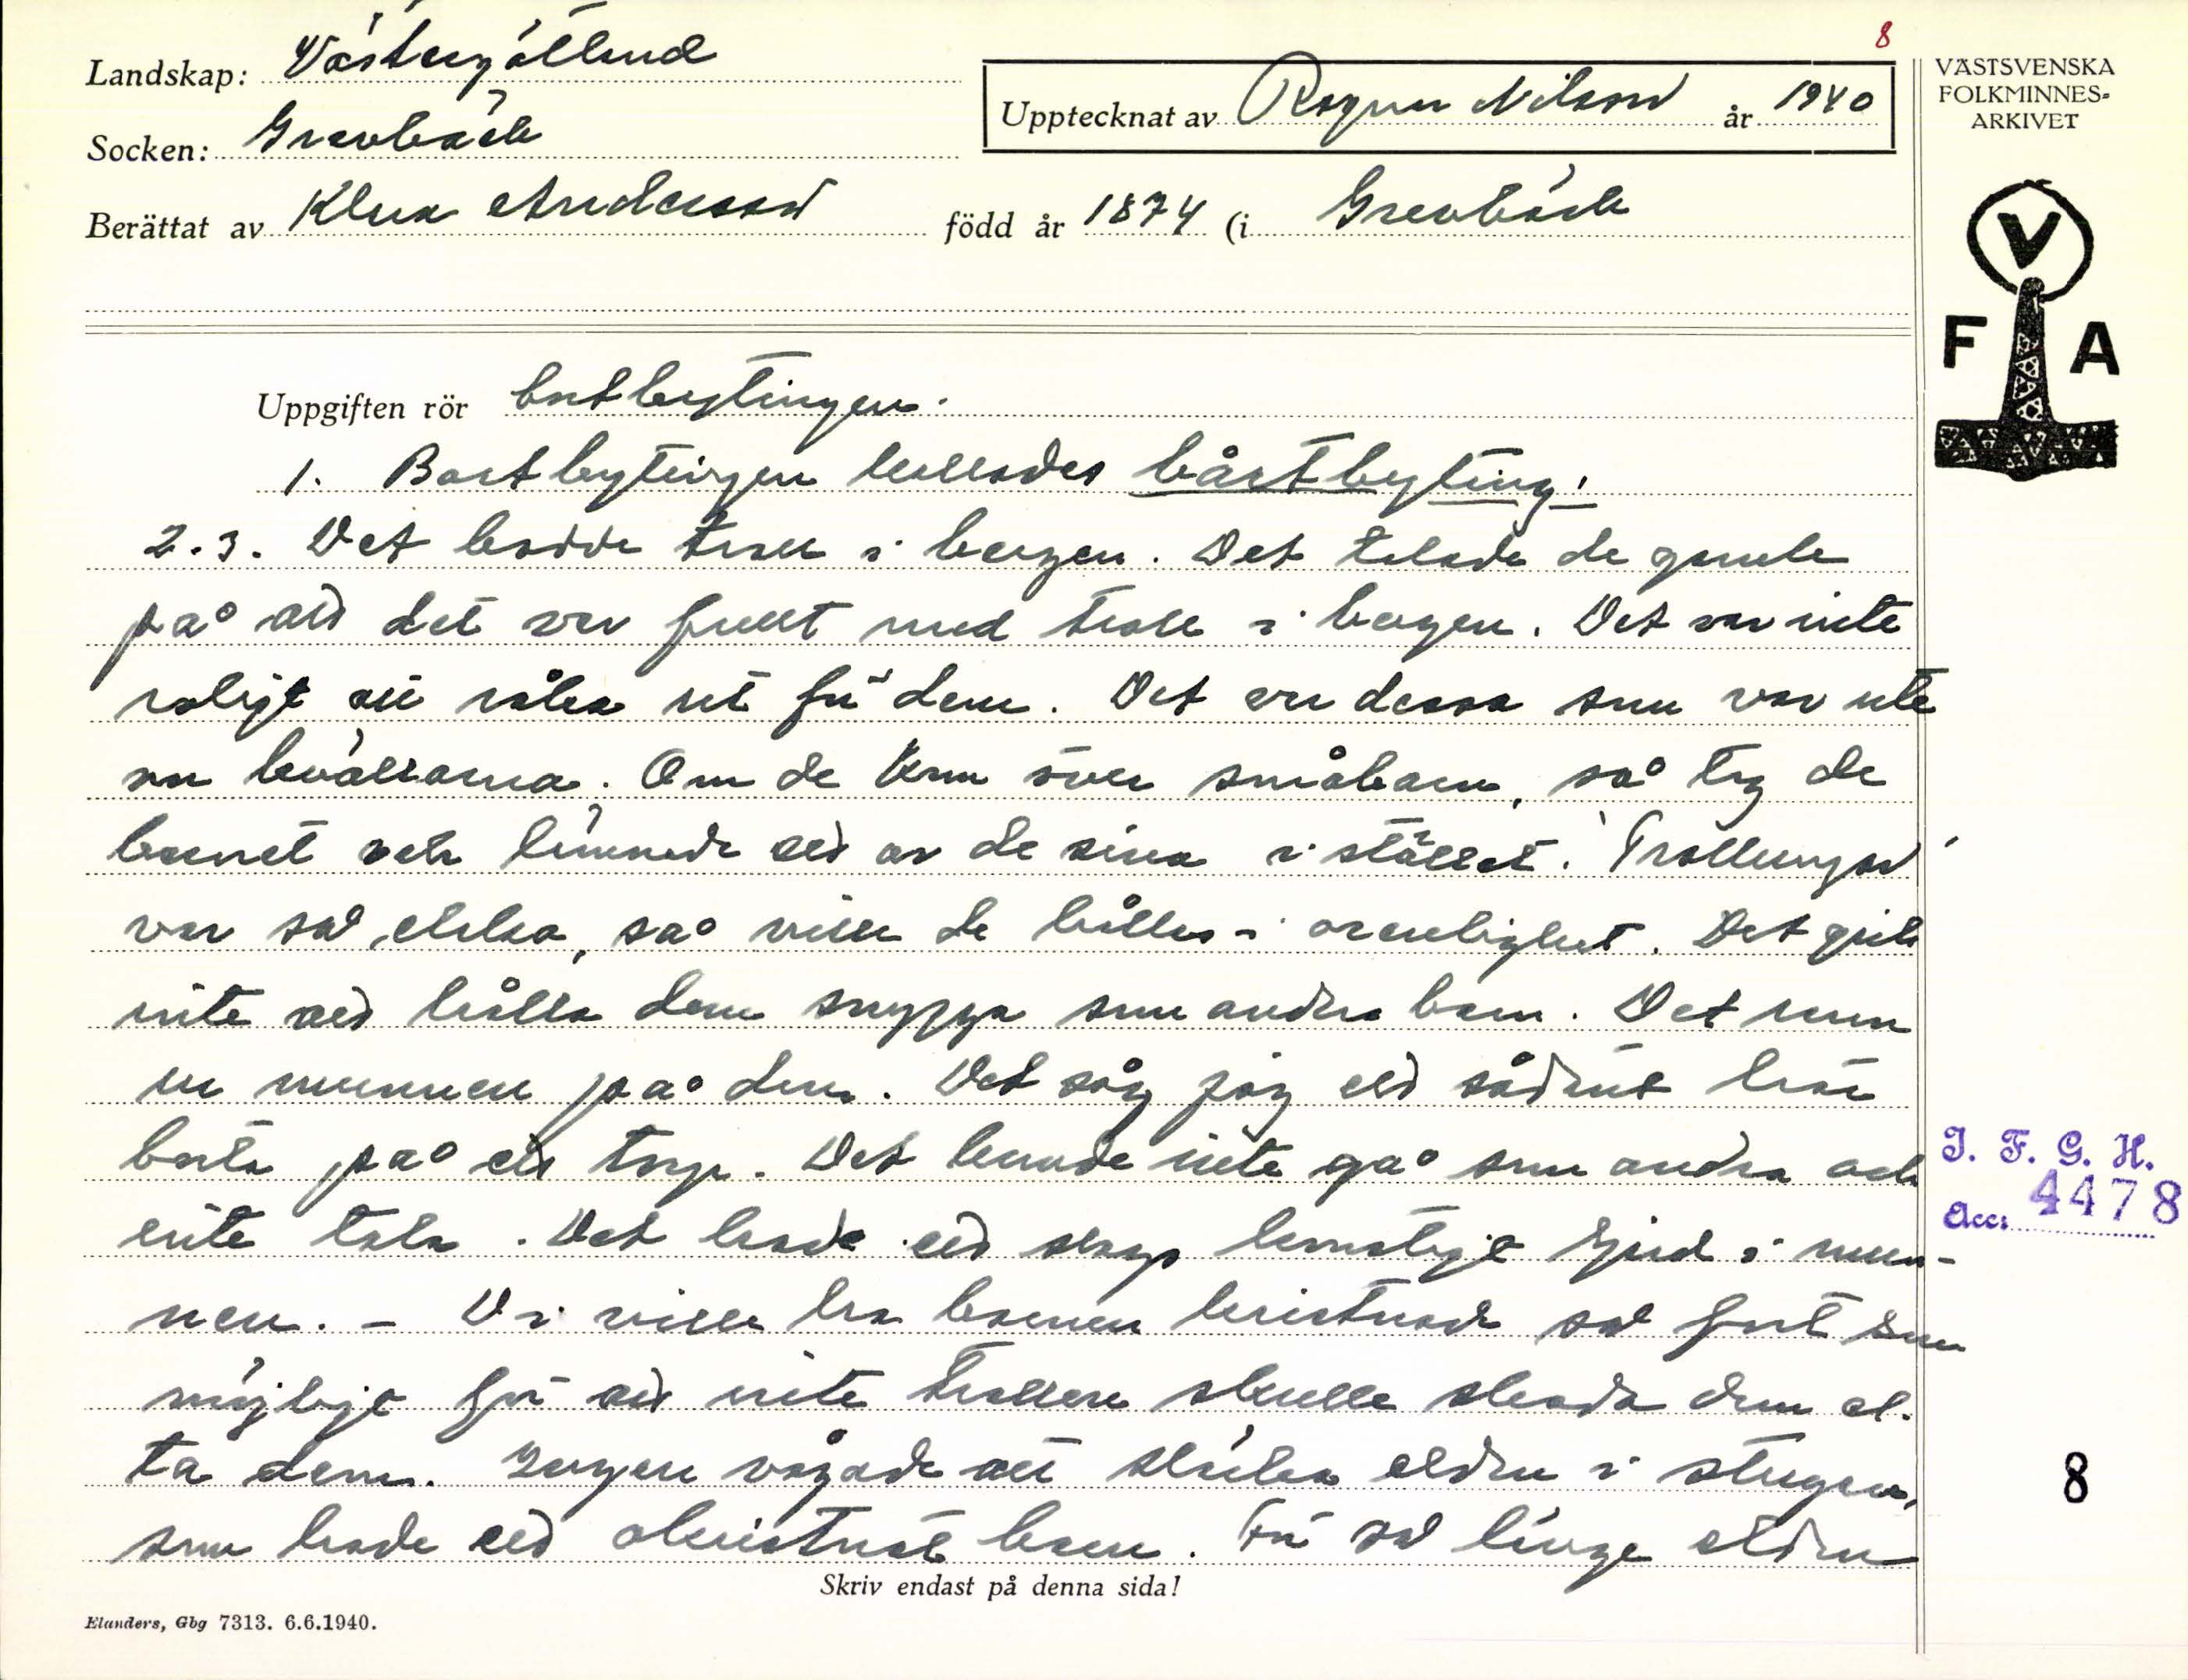 8
Landskap: Västergötland
Upptecknat av Ragnar Nilsson år 1940
VÄSTSVENSKA
FOLKMINNES-
ARKIVET
Socken: Grevbäck
Berättat av Klara Andersson född år 1874 (i Grevbäck
V
F A
Uppgiften rör bortbytingen.
1. Bortbytingen kallades bårtbyting.
2.3. Det bodde troll i bergen. Det talade de gamle
på att det var fullt med troll i bergen. Det var inte
roligt att råka ut för dem. Det var dessa som var ute
om kvällarna. Om de kom över småbarn, så tog de
barnet och lämnade ett av de sina i stället. Trollungar
var så elaka, så ville de hållas i orenlighet. Det gick
inte att hålla dem snygga som andra barn. Det rann
ur munnen på dem. Det såg jag ett sådant här
borta på ett torp. Det kunde inte gå som andra och
inte tala. Det hade ett slags konstigt ljud i mun-
nen. - Vi ville ha barnen kristnade så fort som
möjligt för att inte trollen skulle skada dem el.
ta dem. Ingen vågade att släcka elden i stugan,
som hade ett okristnat barn. För så länge elden
I. F. G. H.
Acc: 4478
8
Skriv endast på denna sida!
Elanders, Gbg 7313. 6.6.1940.